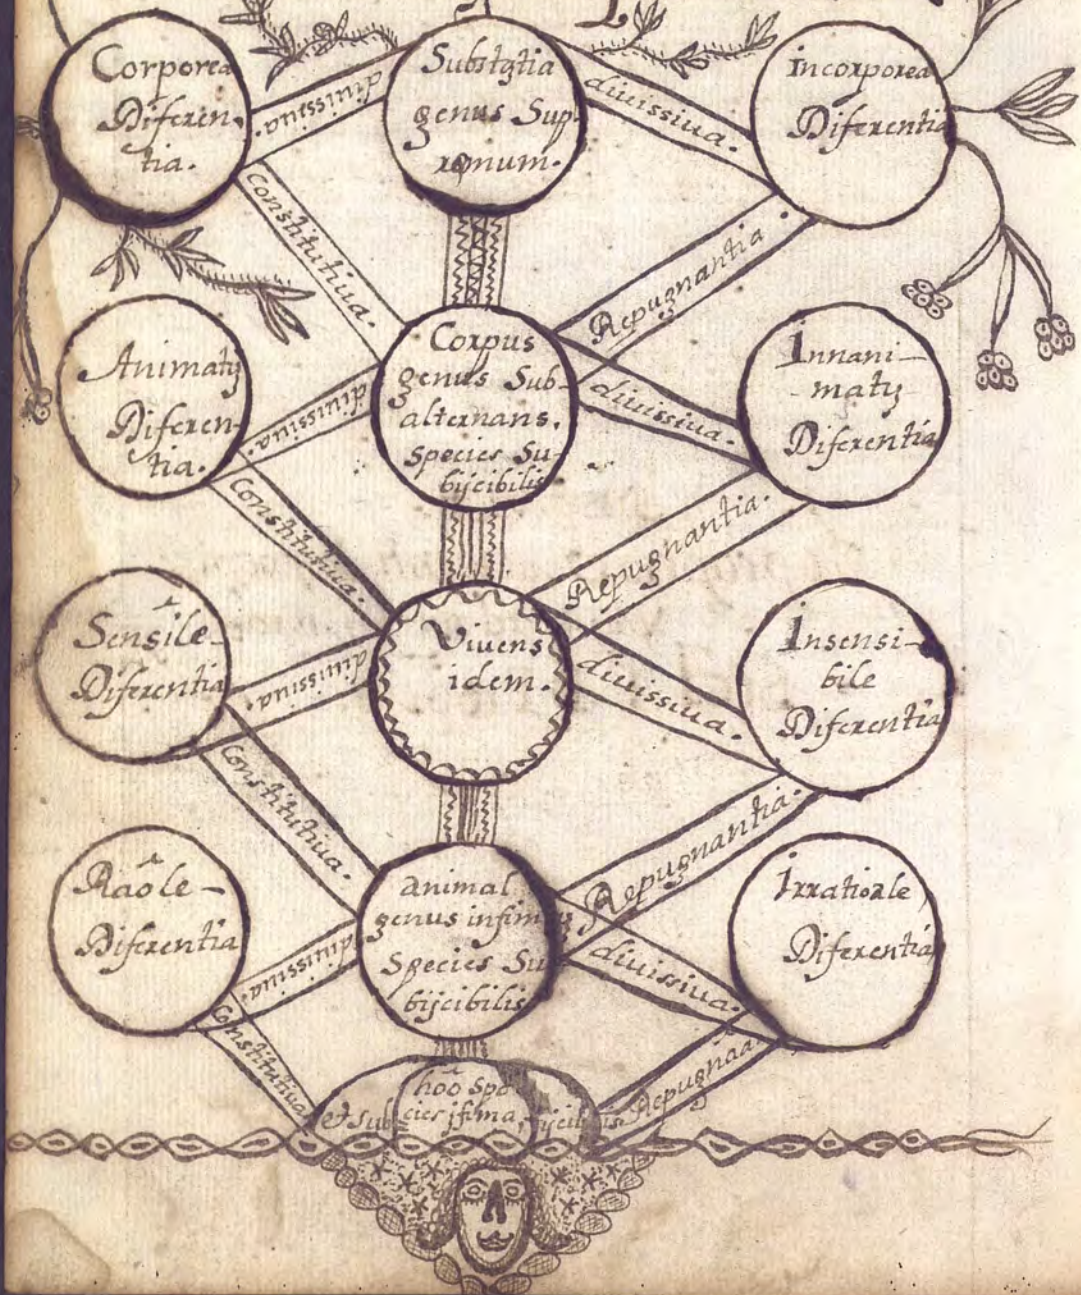 Corporea
Diferen-
tia.
diuissiua.
Substãtia
genus Sup
remum.
diuissiua.
Incorporea
Diferentia
Constitutiua.
Repugnantia
Animatũ
Diferen-
tia.
diuissiua.
Corpus
genus Sub-
alternans.
Species Su-
bijcibilis
diuissiua.
Innani-
matũ
Diferentia
Constitutiua.
Repugnantia.
Sensile-
Diferentia
diuissiua.
Viuens
idem.
diuissiua.
Insensi-
bile
Diferentia
Constitutiua.
Repugnantia.
Raõle-
Diferentia
diuissiua.
animal
genus infimus
Species Su
bijcibilis
diuissiua.
Irrationale
Diferentia
Constitutiua
hoõ spe
et sub cies ĩfima, ijcibilis
Repugnãa.